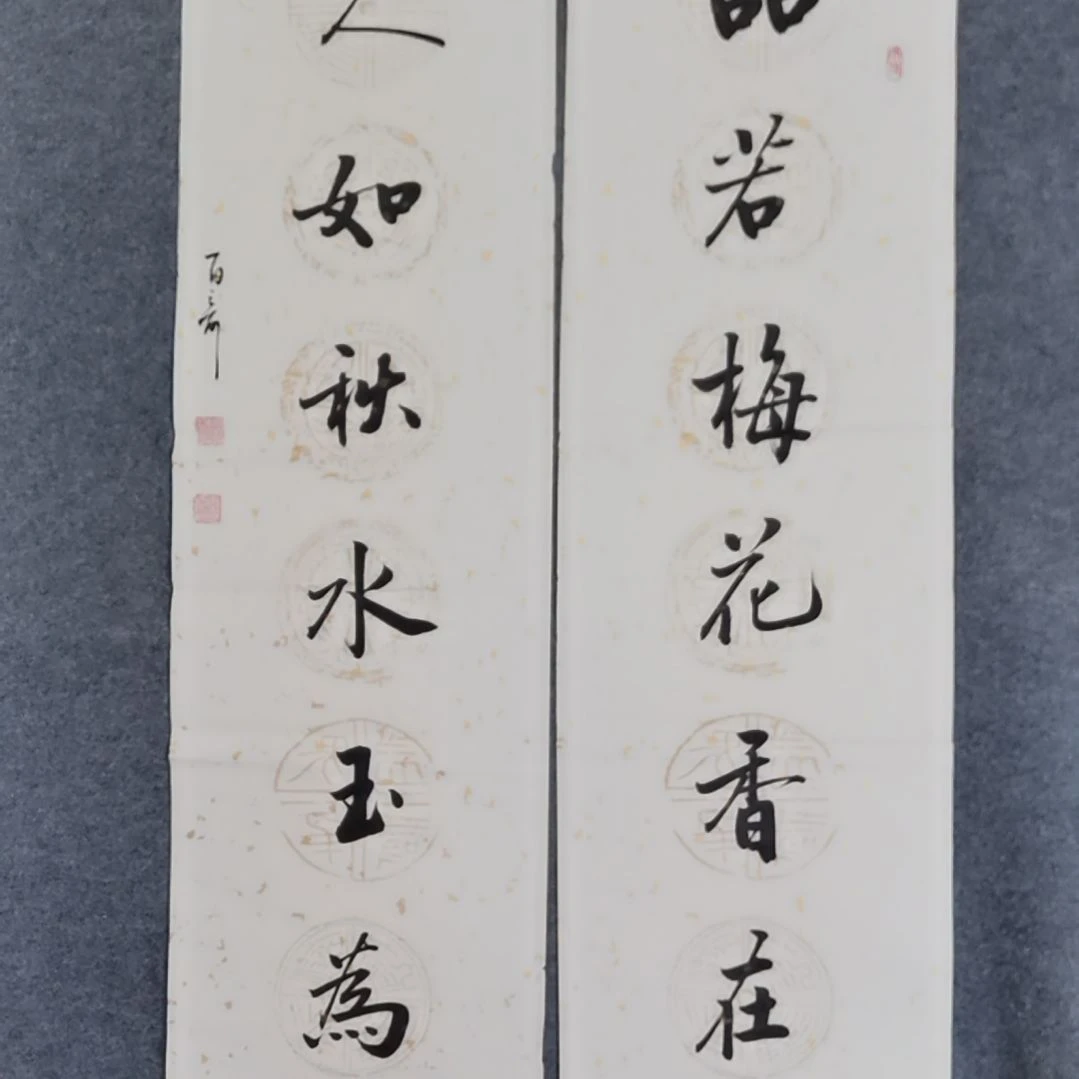 品若梅花香在
人如秋水玉為